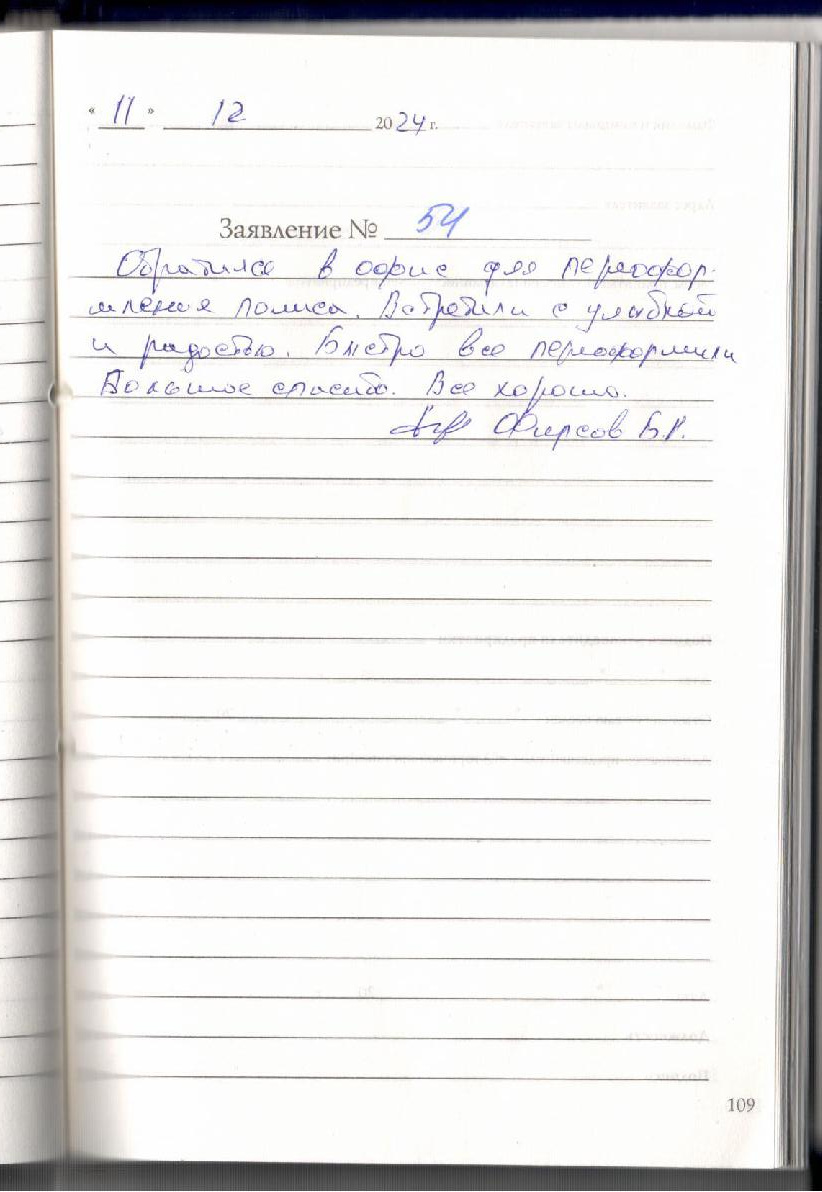 « 11 » 12 2024 г.
Заявление № 54
Обратился в офис для переофор-
мления полиса. Встретили с улыбкой
и радостью. Быстро все переоформили
Большое спасибо. Все хорошо.
Фирсов Б.И.
109